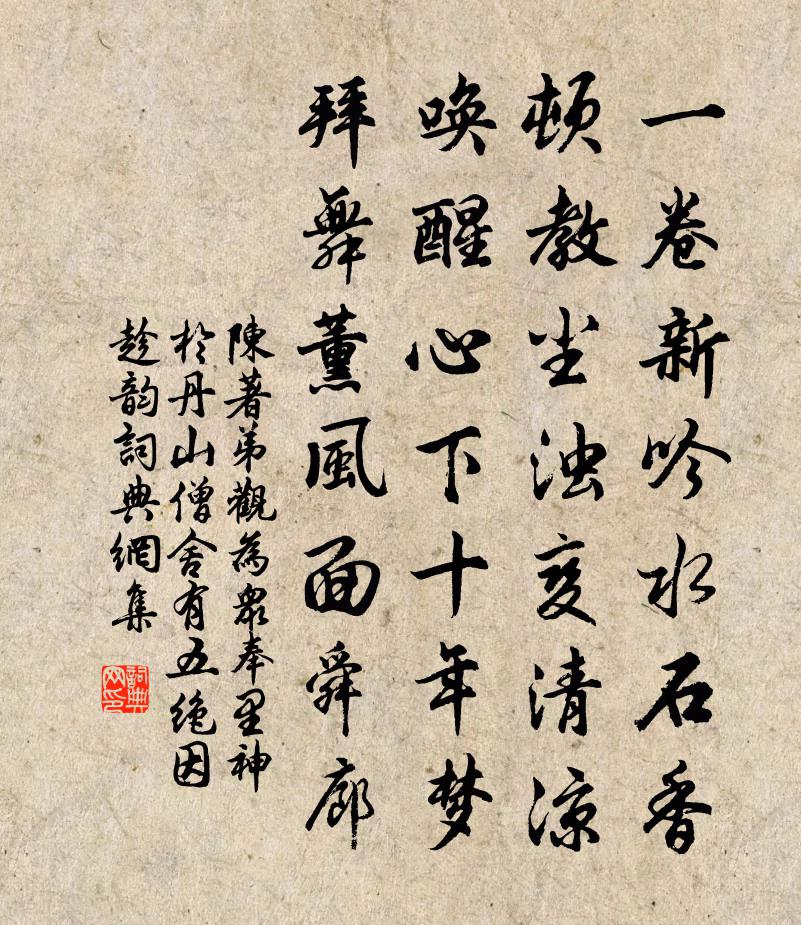 一卷新吟水石香
頓教尘浊变清凉
唤醒心下十年梦
拜舞薰風面舜廊
陳著弟觀為衆奉里神
於丹山僧舍有五绝因
趁韵詞典網集
詞典网印